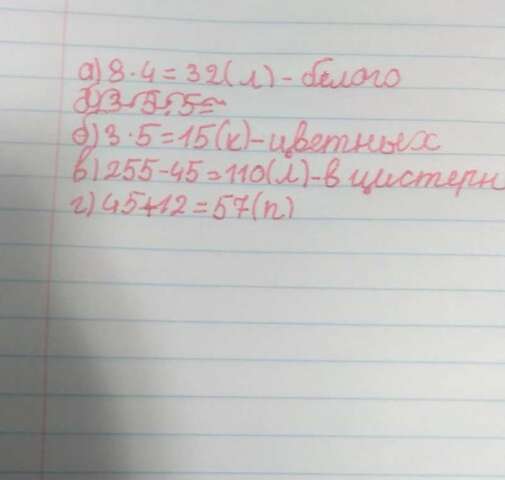 а) 8·4=32(л)-белого
б) 3·5=15(к)-цветных
в) 255-45=110(л)-в цистерн
г) 45+12=57(п)